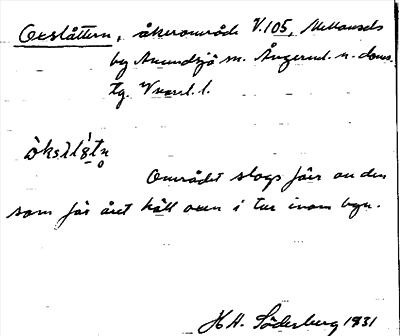 Oxslåttern, åkerområde V.105, Mellansels
by Anundsjö sn. Ångerml. n. doms.
tg. Vnorrl. l.
Området slogs förr av den
som för året höll oxen i tur inom byn.
H A. Söderberg 1931